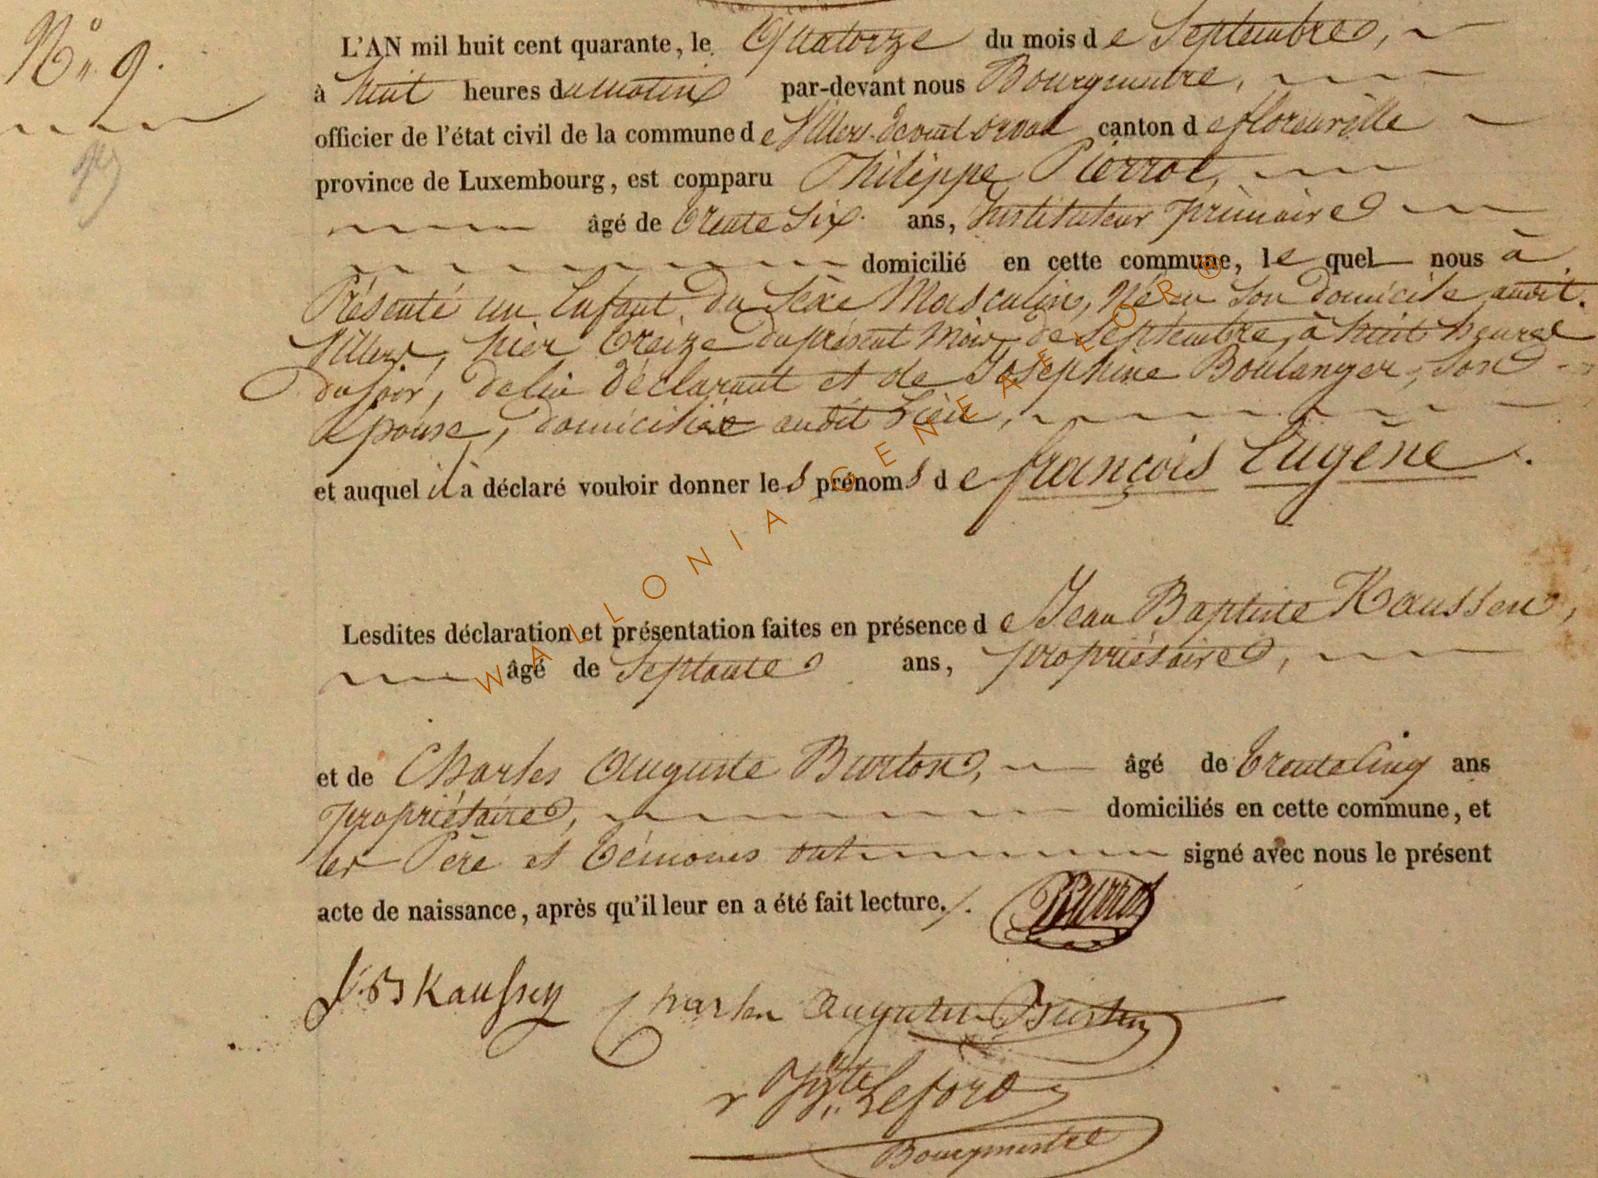 N° 9.
L'AN mil huit cent quarante, le Quatorze du mois de Septembre,
à huit heures du matin par-devant nous Bourgmestre,
officier de l'état civil de la commune de Villers-devant orval canton de florenville
province de Luxembourg, est comparu Philippe Pierrot,
âgé de trente Six ans, Instituteur primaire
domicilié en cette commune, le quel nous à
Présenté un Enfant du Sexe Masculin, Né en Son domicile audit.
Villers, hier treize du présent Mois de Septembre, à huit heures
du soir, de lui déclarant et de Joséphine Boulanger, Son
épouse, domiciliée audit Lieu,
et auquel il a déclaré vouloir donner les prénoms de françois Eugène.
Lesdites déclaration et présentation faites en présence de Jean Baptiste Kaussen,
âgé de Septante ans, propriétaire,
et de Charles Auguste Burton, âgé de trente Cinq ans
propriétaire, domiciliés en cette commune, et
les Père et témoins ont signé avec nous le présent
acte de naissance, après qu'il leur en a été fait lecture./.
Pierrot
J. B Kaussen Charles Auguste Burton
Leford
Bourgmestre
WALLONIA GENEALOR ®